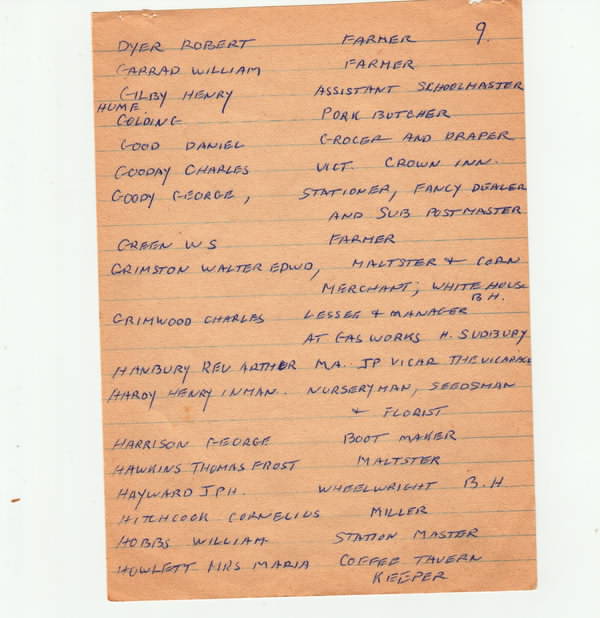 9.
DYER ROBERT FARMER
GARRAD WILLIAM FARMER
GILBY HENRY ASSISTANT SCHOOLMASTER
HUME
GOLDING PORK BUTCHER
GOOD DANIEL GROCER AND DRAPER
GOODAY CHARLES VICT. CROWN INN.
GOODY GEORGE, STATIONER, FANCY DEALER
AND SUB POSTMASTER
GREEN W S FARMER
GRIMSTON WALTER EDWD, MALTSTER & CORN
MERCHANT; WHITE HOUSE
B.H.
GRIMWOOD CHARLES LESSEE & MANAGER
AT GAS WORKS H. SUDBURY
HANBURY REV ARTHUR MA. JP VICAR THE VICARAGE
HARDY HENRY INMAN.. NURSERYMAN, SEEDSMAN
& FLORIST
HARRISON GEORGE BOOT MAKER
HAWKINS THOMAS FROST MALTSTER
HAYWARD JPH. WHEELWRIGHT B.H
HITCHCOCK CORNELIUS MILLER
HOBBS WILLIAM STATION MASTER
HOWLETT MRS MARIA COFFEE TAVERN
KEEPER